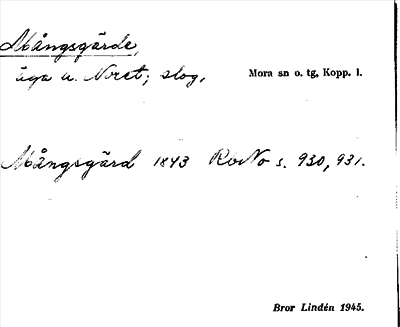 Mångsgärde,
äga u. Noret; slog,
Mora sn o. tg, Kopp. l.
Mångsgärd 1843 RoNo s. 930, 931.
Bror Lindén 1945.